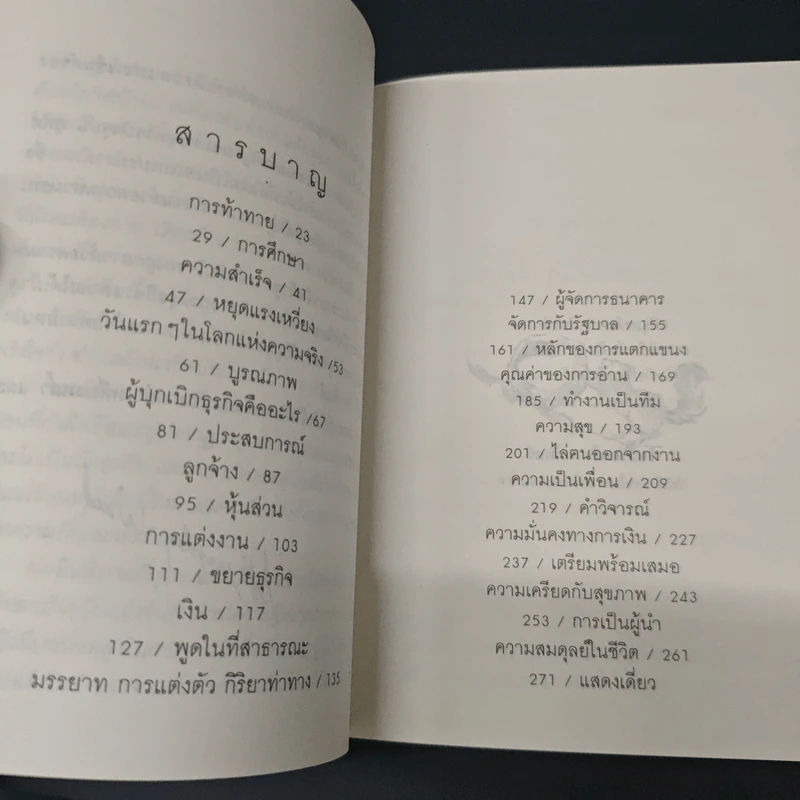 สารบาญ
การท้าทาย / 23
29 / การศึกษา
ความสำเร็จ / 41
47 / หยุดแรงเหวี่ยง
วันแรก ๆ ในโลกแห่งความจริง /53
61 / บูรณภาพ
ผู้บุกเบิกธุรกิจคืออะไร /67
81 / ประสบการณ์
ลูกจ้าง / 87
95 / หุ้นส่วน
การแต่งงาน / 103
111 / ขยายธุรกิจ
เงิน / 117
127 / พูดในที่สาธารณะ
มรรยาท การแต่งตัว กิริยาท่าทาง / 135
147 / ผู้จัดการธนาคาร
จัดการกับรัฐบาล / 155
161 / หลักของการแตกแขนง
คุณค่าของการอ่าน / 169
185 / ทำงานเป็นทีม
ความสุข / 193
201 / ไล่คนออกจากงาน
ความเป็นเพื่อน / 209
219 / คำวิจารณ์
ความมั่นคงทางการเงิน / 227
237 / เตรียมพร้อมเสมอ
ความเครียดกับสุขภาพ / 243
253 / การเป็นผู้นำ
ความสมดุลย์ในชีวิต / 261
271 / แสดงเดี่ยว